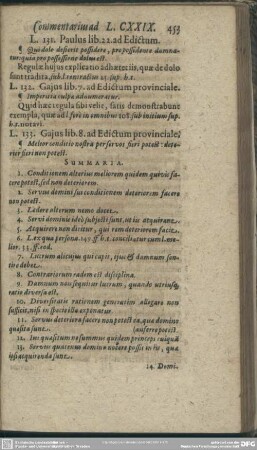 Commentarii ad L. CXXIX. 453
L. 131. Paulus lib. 22. ad Edictum.
¶ Qui dolo desierit possidere, pro possidente damna-
tur: quia pro possessione dolus est.
Regulæ hujus explicatio adhæret iis, quæ de dolo
sunt tradita, sub l. 23. sup. h. t.
L. 132. Gajus lib. 7. ad Edictum provinciale.
¶ Imperitia culpa adnumeratur.
Quid hæc regula sibi velit, satis demonstrabunt
exempla, quæ ad l. fere in omnibus sub initium sup.
h. t. notavi.
L. 133. Gajus lib. 8. ad Edictum provinciale.
¶ Melior conditio nostra per servos fieri potest: dete-
rior fieri non potest.
SUMMARIA.
1. Conditionem alterius meliorem quidem quivis fa-
cere potest, sed non deteriorem.
2. Servus domini sui conditionem deteriorem facere
non potest.
3. Lædere alterum nemo debet.
4. Servi dominis ideo subjecti sunt, ut iis acquirant.
5. Acquirere non dicitur, qui rem deteriorem facit.
6. L. ex qua persona. 149. ff. h. t. conciliatur cum l. mu-
lier. 55. ff. eod.
7. Lucrum alicujus qui capit, ejus & damnum sen-
tire debet.
8. Contrariorum eadem est disciplina.
9. Damnum non sequitur lucrum, quando utriusq;
ratio diversa est.
10. Diversitatis rationem generatim allegare non
sufficit, nisi in specie ista exponatur.
11. Servus deteriora facere non potest ea, quæ domino
quæsita sunt. (auferre potest.
12. Ius quæsitum ne summus quidem princeps cuiquã
13. Servus quatenus domino nocere possit in iis, quæ
ipsi acquirenda sunt.
14. Domi-